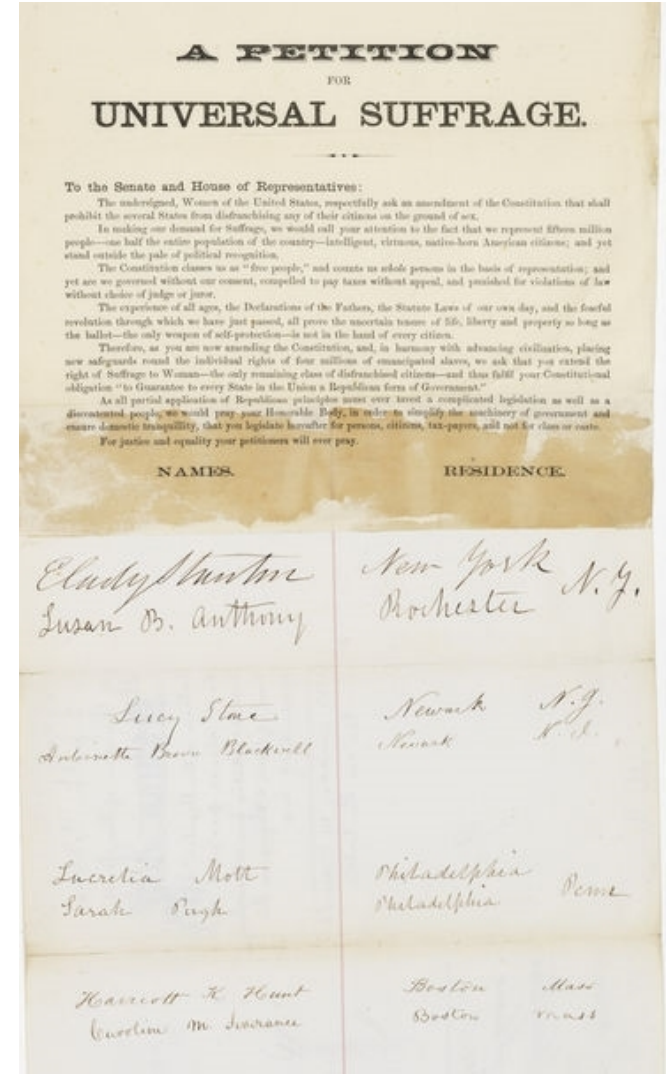 A PETITION
FOR
UNIVERSAL SUFFRAGE.
To the Senate and House of Representatives:
The undersigned, Women of the United States, respectfully ask an amendment of the Constitution that shall
prohibit the several States from disfranchising any of their citizens on the ground of sex.
In making our demand for Suffrage, we would call your attention to the fact that we represent fifteen million
people—one half the entire population of the country—intelligent, virtuous, native-born American citizens; and yet
stand outside the pale of political recognition.
The Constitution classes us as "free people," and counts us whole persons in the basis of representation; and
yet are we governed without our consent, compelled to pay taxes without appeal, and punished for violations of law
without choice of judge or juror.
The experience of all ages, the Declarations of the Fathers, the Statute Laws of our own day, and the fearful
revolution through which we have just passed, all prove the uncertain tenure of life, liberty and property so long as
the ballot—the only weapon of self-protection—is not in the hand of every citizen.
Therefore, as you are now amending the Constitution, and, in harmony with advancing civilization, placing
new safeguards round the individual rights of four millions of emancipated slaves, we ask that you extend the
right of Suffrage to Woman—the only remaining class of disfranchised citizens—and thus fulfil your Constitutional
obligation "to Guarantee to every State in the Union a Republican form of Government."
As all partial application of Republican principles must ever breed a complicated legislation as well as a
discontented people, we would pray your Honorable Body, in order to simplify the machinery of government and
ensure domestic tranquillity, that you legislate hereafter for persons, citizens, tax-payers, and not for class or caste.
For justice and equality your petitioners will ever pray.
NAMES. RESIDENCE.
ECadyStanton New York
Susan B. Anthony Rochester N.Y.
Lucy Stone Newark N.J.
Antoinette Brown Blackwell Newark N.J.
Lucretia Mott Philadelphia
Sarah Pugh Philadelphia Penn
Harriott K Hunt Boston Mass
Caroline M. Severance Boston Mass